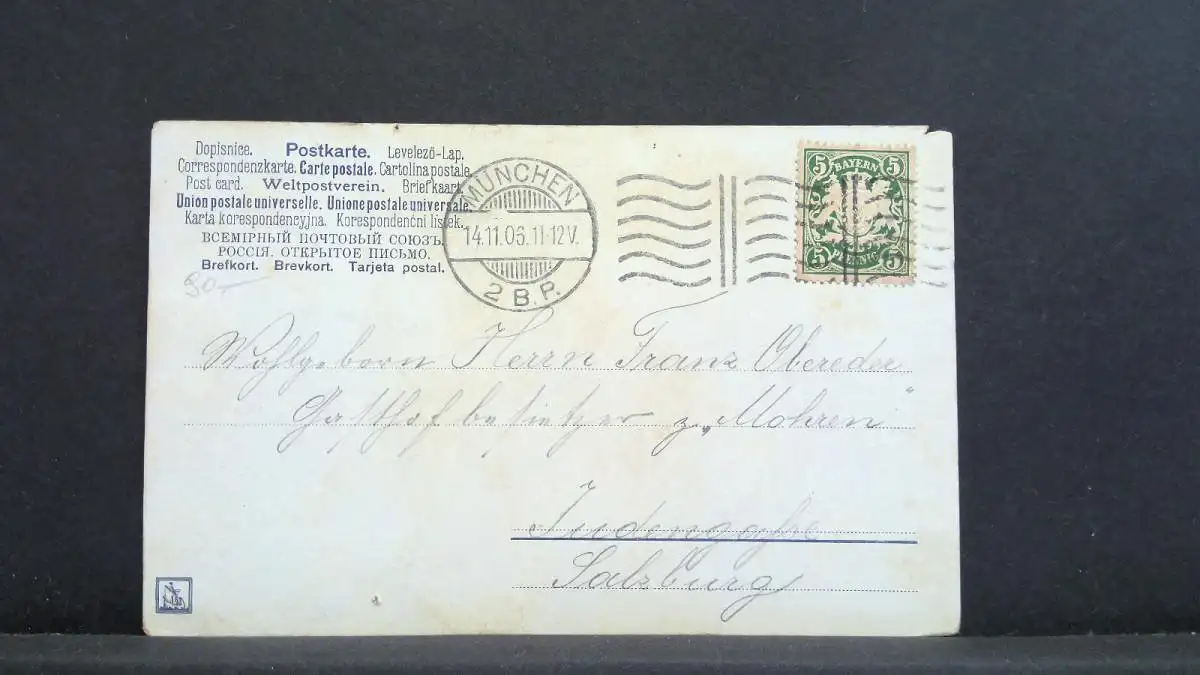 Dopisnice. Postkarte. Levelező-Lap.
Correspondenzkarte. Carte postale. Cartolina postale.
Post card. Weltpostverein. Briefkaart.
Union postale universelle. Unione postale universale.
Karta korespondencyjna. Korespondenční lístek.
ВСЕМІРНЫЙ ПОЧТОВЫЙ СОЮЗЪ.
РОССІЯ. ОТКРЫТОЕ ПИСЬМО.
Brefkort. Brevkort. Tarjeta postal.
50
MÜNCHEN
14.11.06.11-12V.
2 B.P.
5 BAYERN 5
5 PFENNIG 5
Wohlgeborn Herrn Franz Obereder
Gasthofbesietzer z. „Mohren"
Judengaße
Salzburg